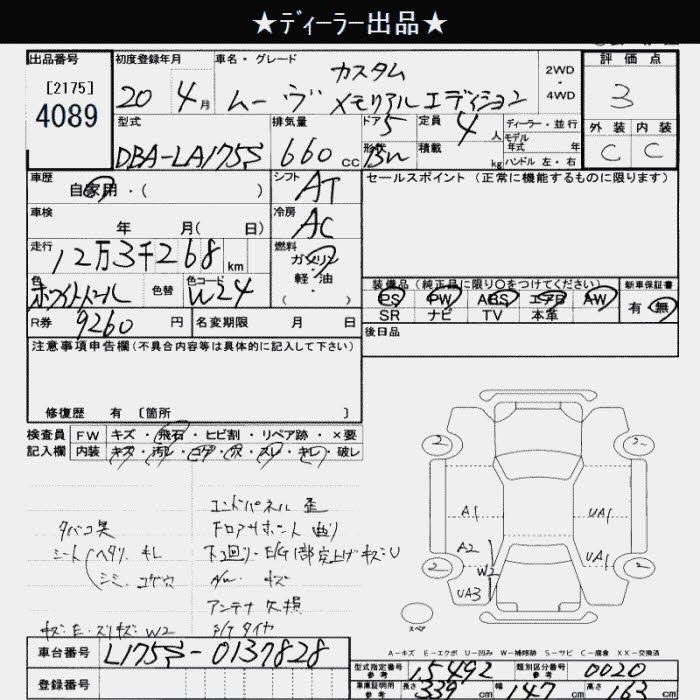 ★ディーラー出品★
出品番号
[2175]
4089
初度登録年月
20年4月
車名・グレード
ムーヴ カスタム メモリアルエディション
2WD・4WD
評価点
3
外装 内装
C C
型式
DBA-LA175S
排気量
660cc
ドア 5
形状 Bn
定員 4人
積載 kg
ディーラー・並行
モデル年式 年
ハンドル 左・右
車歴
自家用・( )
シフト
AT
セールスポイント(正常に機能するものに限ります)
車検
年 月( 日)
冷房
AC
走行
12万3千268km
燃料
ガソリン・軽油・( )
色
ホワイトパール
色替
色コード
W24
装備品(純正品に限り○をつけてください)
PS PW ABS エアB AW
SR ナビ TV 本革
新車保証書
有・無
R券 9260円
名変期限 月 日
後日品
注意事項申告欄(不具合内容等は具体的に記入して下さい)
修復歴 有〔箇所 〕
検査員記入欄
FW キズ・飛石・ヒビ割・リペア跡・×要
内装 キズ・汚レ・コゲ・穴・スレ・キレ・破レ
エンドパネル 歪
フロアサポート 曲り
タバコ臭
シート ヘタリ キレ
シミ コゲ穴
下回り・E/G1部突上げキズU
キズ
アンテナ欠損
キズ・E・スリキズ・W2
S/Tタイヤ
2 2
A1 UA1
A2 W2 UA1
2 UA3 2
スペア
A-キズ E-エクボ U-凹み W-補修跡 S-サビ C-腐食 XX-交換済
車台番号
L175S-0137828
登録番号
型式指定番号参考 15492
類別区分番号参考 0020
車庫証明用参考 長さ 339cm 幅 147cm 高さ 163cm